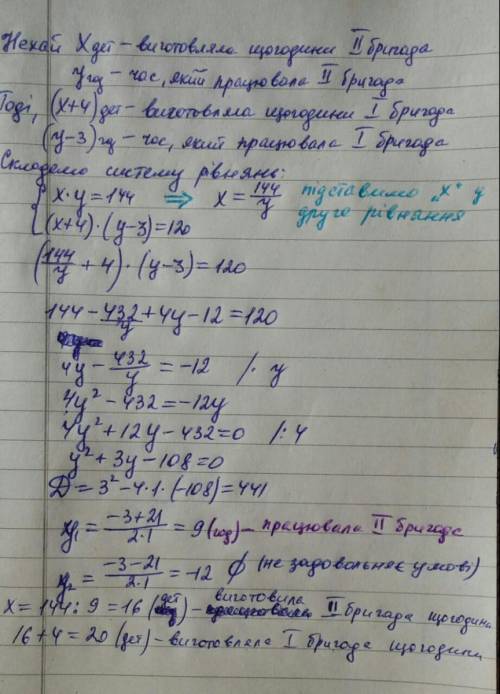 Нехай x дет – виготовляла щогодини II бригада
y год – час, який працювала II бригада
Тоді, (x+4) дет – виготовляла щогодини I бригада
(y-3) год – час, який працювала I бригада
Складемо систему рівнянь:
{ x·y=144 ⇒ x=144/y підставимо „x" у
(x+4)·(y-3)=120 друге рівняння
(144/y + 4)·(y-3)=120
144 - 432/y + 4y - 12 = 120
4y - 432/y = -12 /· y
4y² - 432 = -12y
4y² + 12y - 432 = 0 /:4
y² + 3y - 108 = 0
D = 3² - 4·1·(-108) = 441
y₁ = (-3+21)/(2·1) = 9 (год) – працювала II бригада
y₂ = (-3-21)/(2·1) = -12 ∅ (не задовольняє умові)
x = 144 : 9 = 16 (дет) – виготовила II бригада щогодини
16+4 = 20 (дет) – виготовляла I бригада щогодини